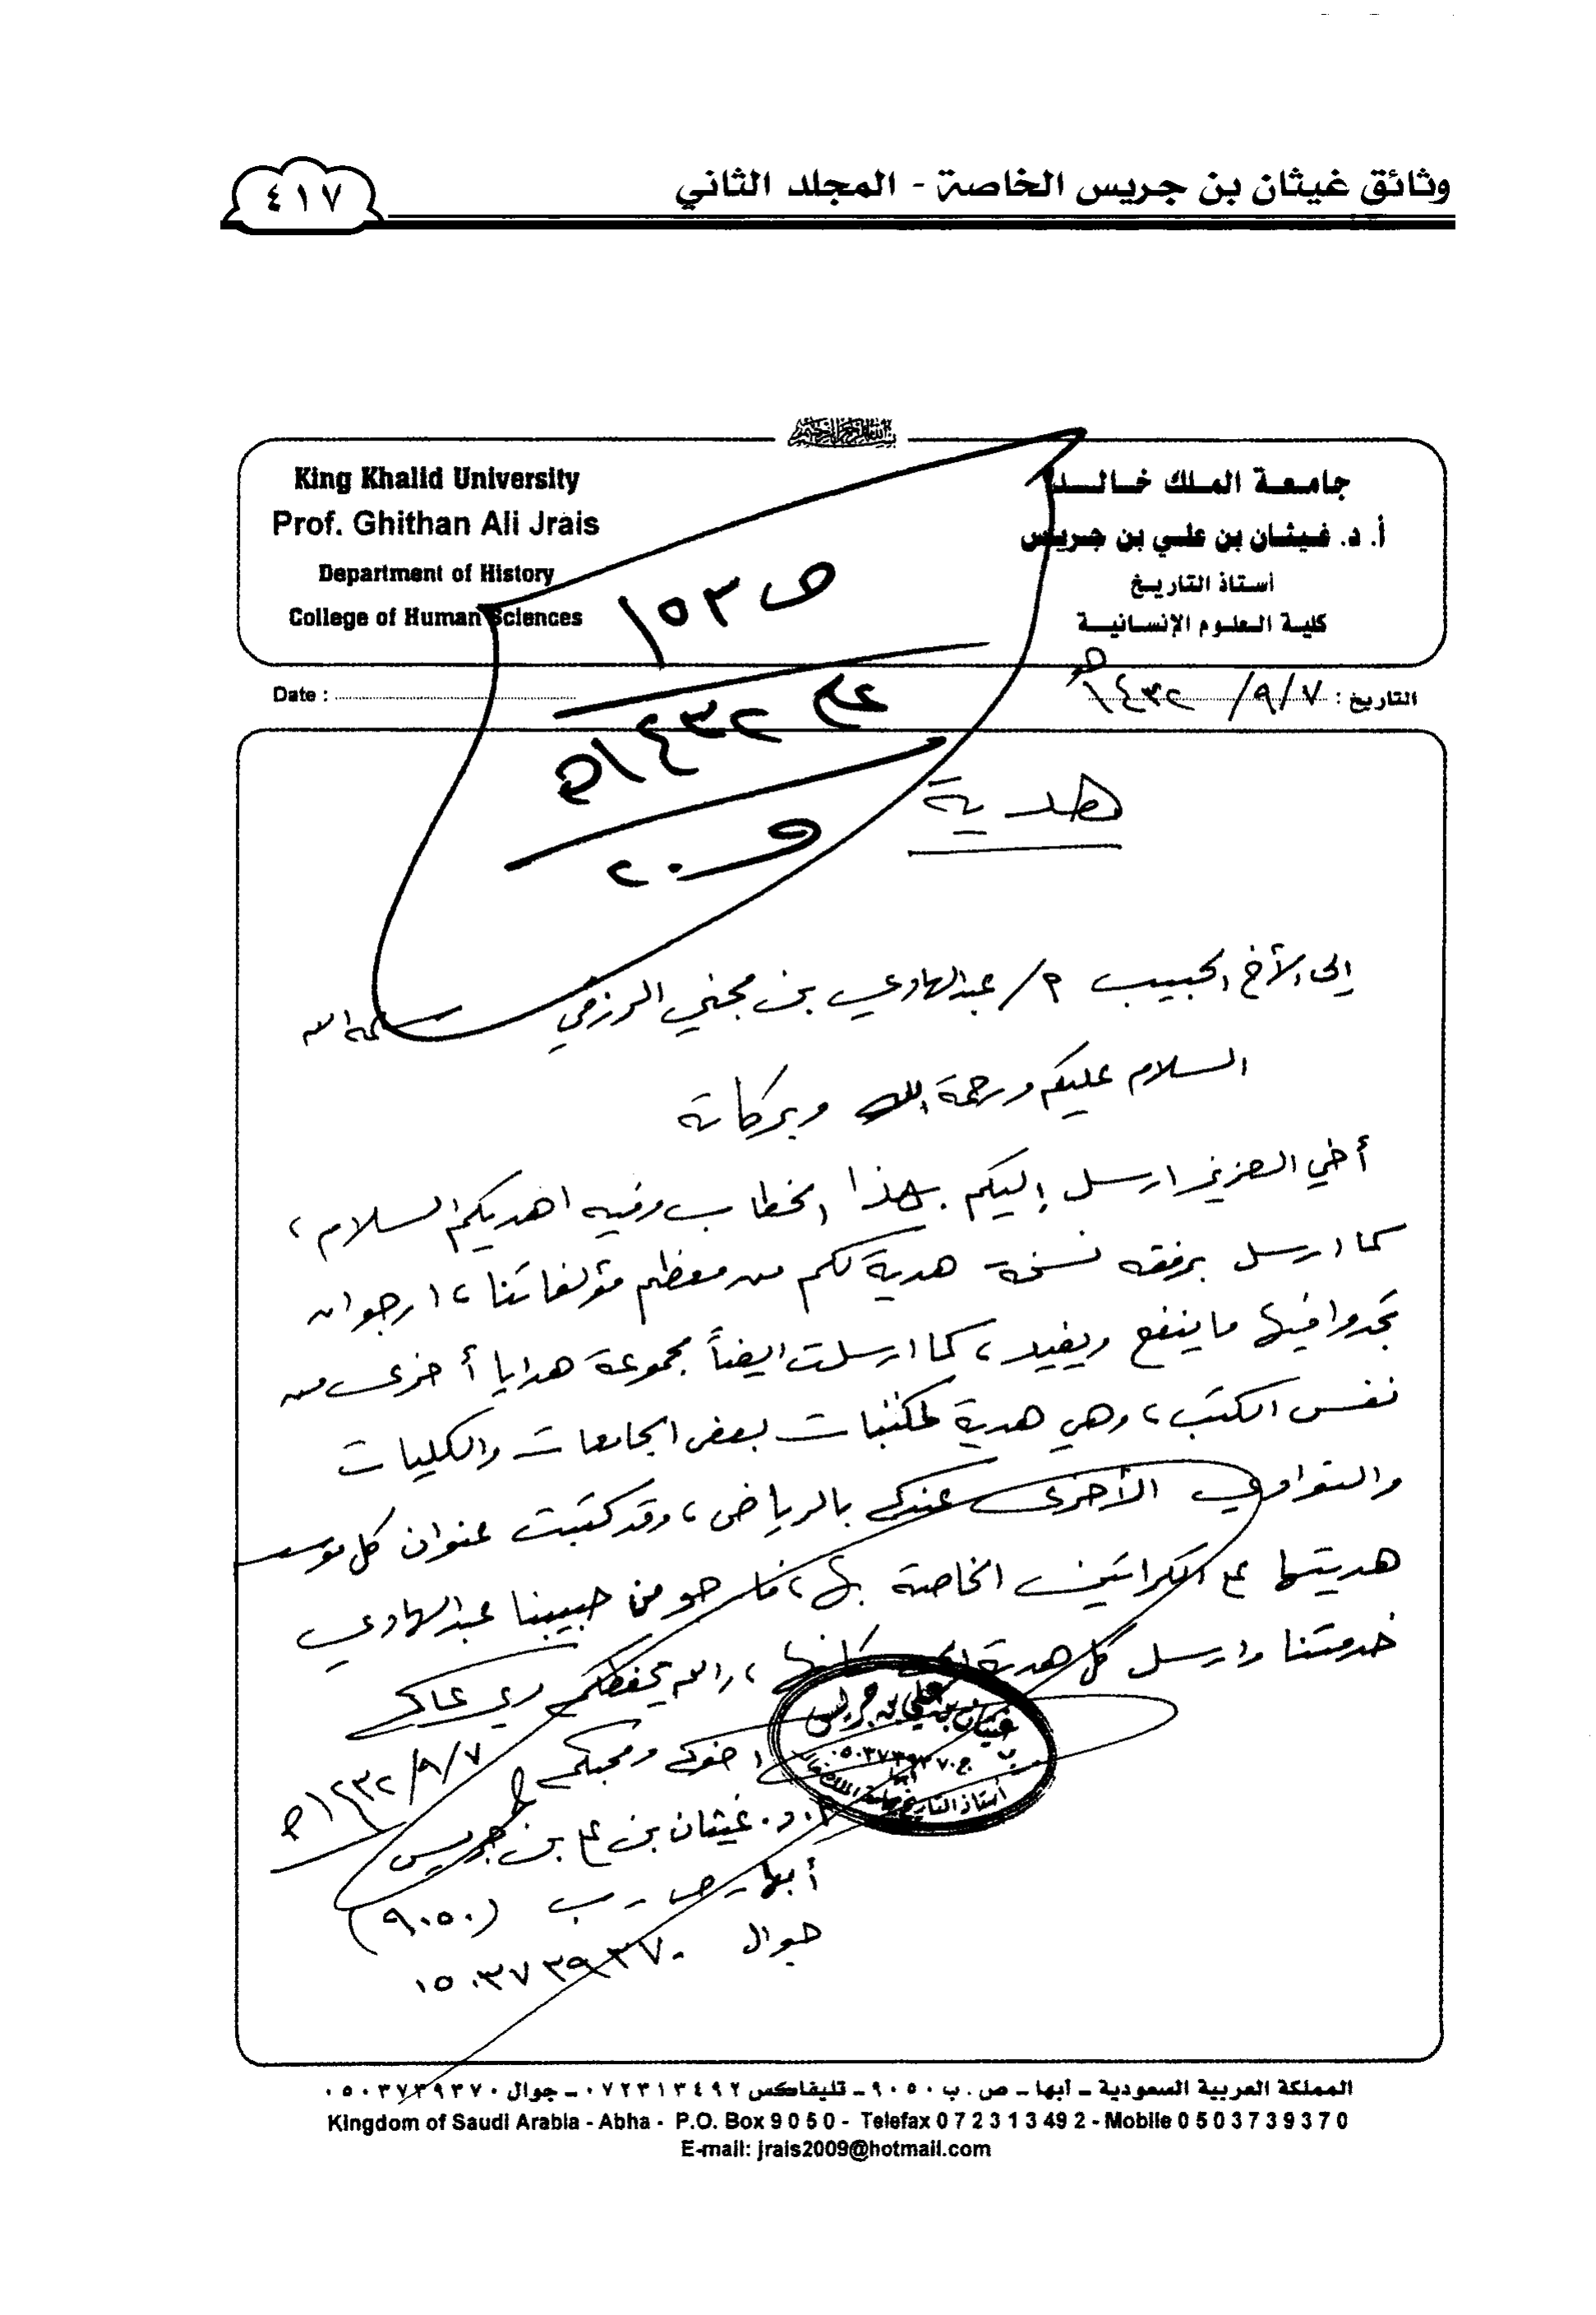 وثائق غيثان بن جريس الخاصة - المجلد الثاني
٤١٧
جامعة الملك خالد
أ. د. غيثان بن علي بن جريس
أستاذ التاريخ
كلية العلوم الإنسانية
King Khalid University
Prof. Ghithan Ali Jrais
Department of History
College of Human Sciences
التاريخ : ٧/٩/١٤٣٢هـ
Date :
ص ١٥٣
عام ١٤٣٢هـ
و ٢٠
هدية
إلى الأخ الحبيب م/ عبدالهادي بن مجني الرزقي سلمه الله
السلام عليكم ورحمة الله وبركاته
أخي العزيز ارسل إليكم بهذا الخطاب وفيه اهديكم السلام ،
كما ارسل برفقه نسخة هدية لكم من معظم مؤلفاتنا ، ارجو ان
تجدوا فيها ما ينفع ويفيد ، كما ارسلت ايضاً مجموعة هدايا أخرى من
نفس الكتب ، وهي هدية لمكتبات بعض الجامعات والكليات
والنوادي الأخرى عندكم بالرياض ، وقد كتبت عنوان كل مؤسسة
هديتها على الكراتين الخاصة بها ، فارجو من حبيبنا عبدالهادي
خدمتنا وارسل كل هدية إلى مكانها ، والله يحفظكم ويرعاكم
اخوكم ومحبكم
٧/٩/١٤٣٢هـ
أ.د. غيثان بن علي بن جريس
أبها - ص - ب (٩٠٥٠)
جوال ٠٥٠٣٧٣٩٣٧٠
غيثان بن علي بن جريس
ج ٠٥٠٣٧٣٩٣٧٠
أبها
أستاذ التاريخ بجامعة الملك خالد
المملكة العربية السعودية - أبها - ص . ب ٩٠٥٠ - تليفاكس ٠٧٢٣١٣٤٩٢ - جوال ٠٥٠٣٧٣٩٣٧٠
Kingdom of Saudi Arabia - Abha - P.O. Box 9 0 5 0 - Telefax 0 7 2 3 1 3 49 2 - Mobile 0 5 0 3 7 3 9 3 7 0
E-mail: jrais2009@hotmail.com